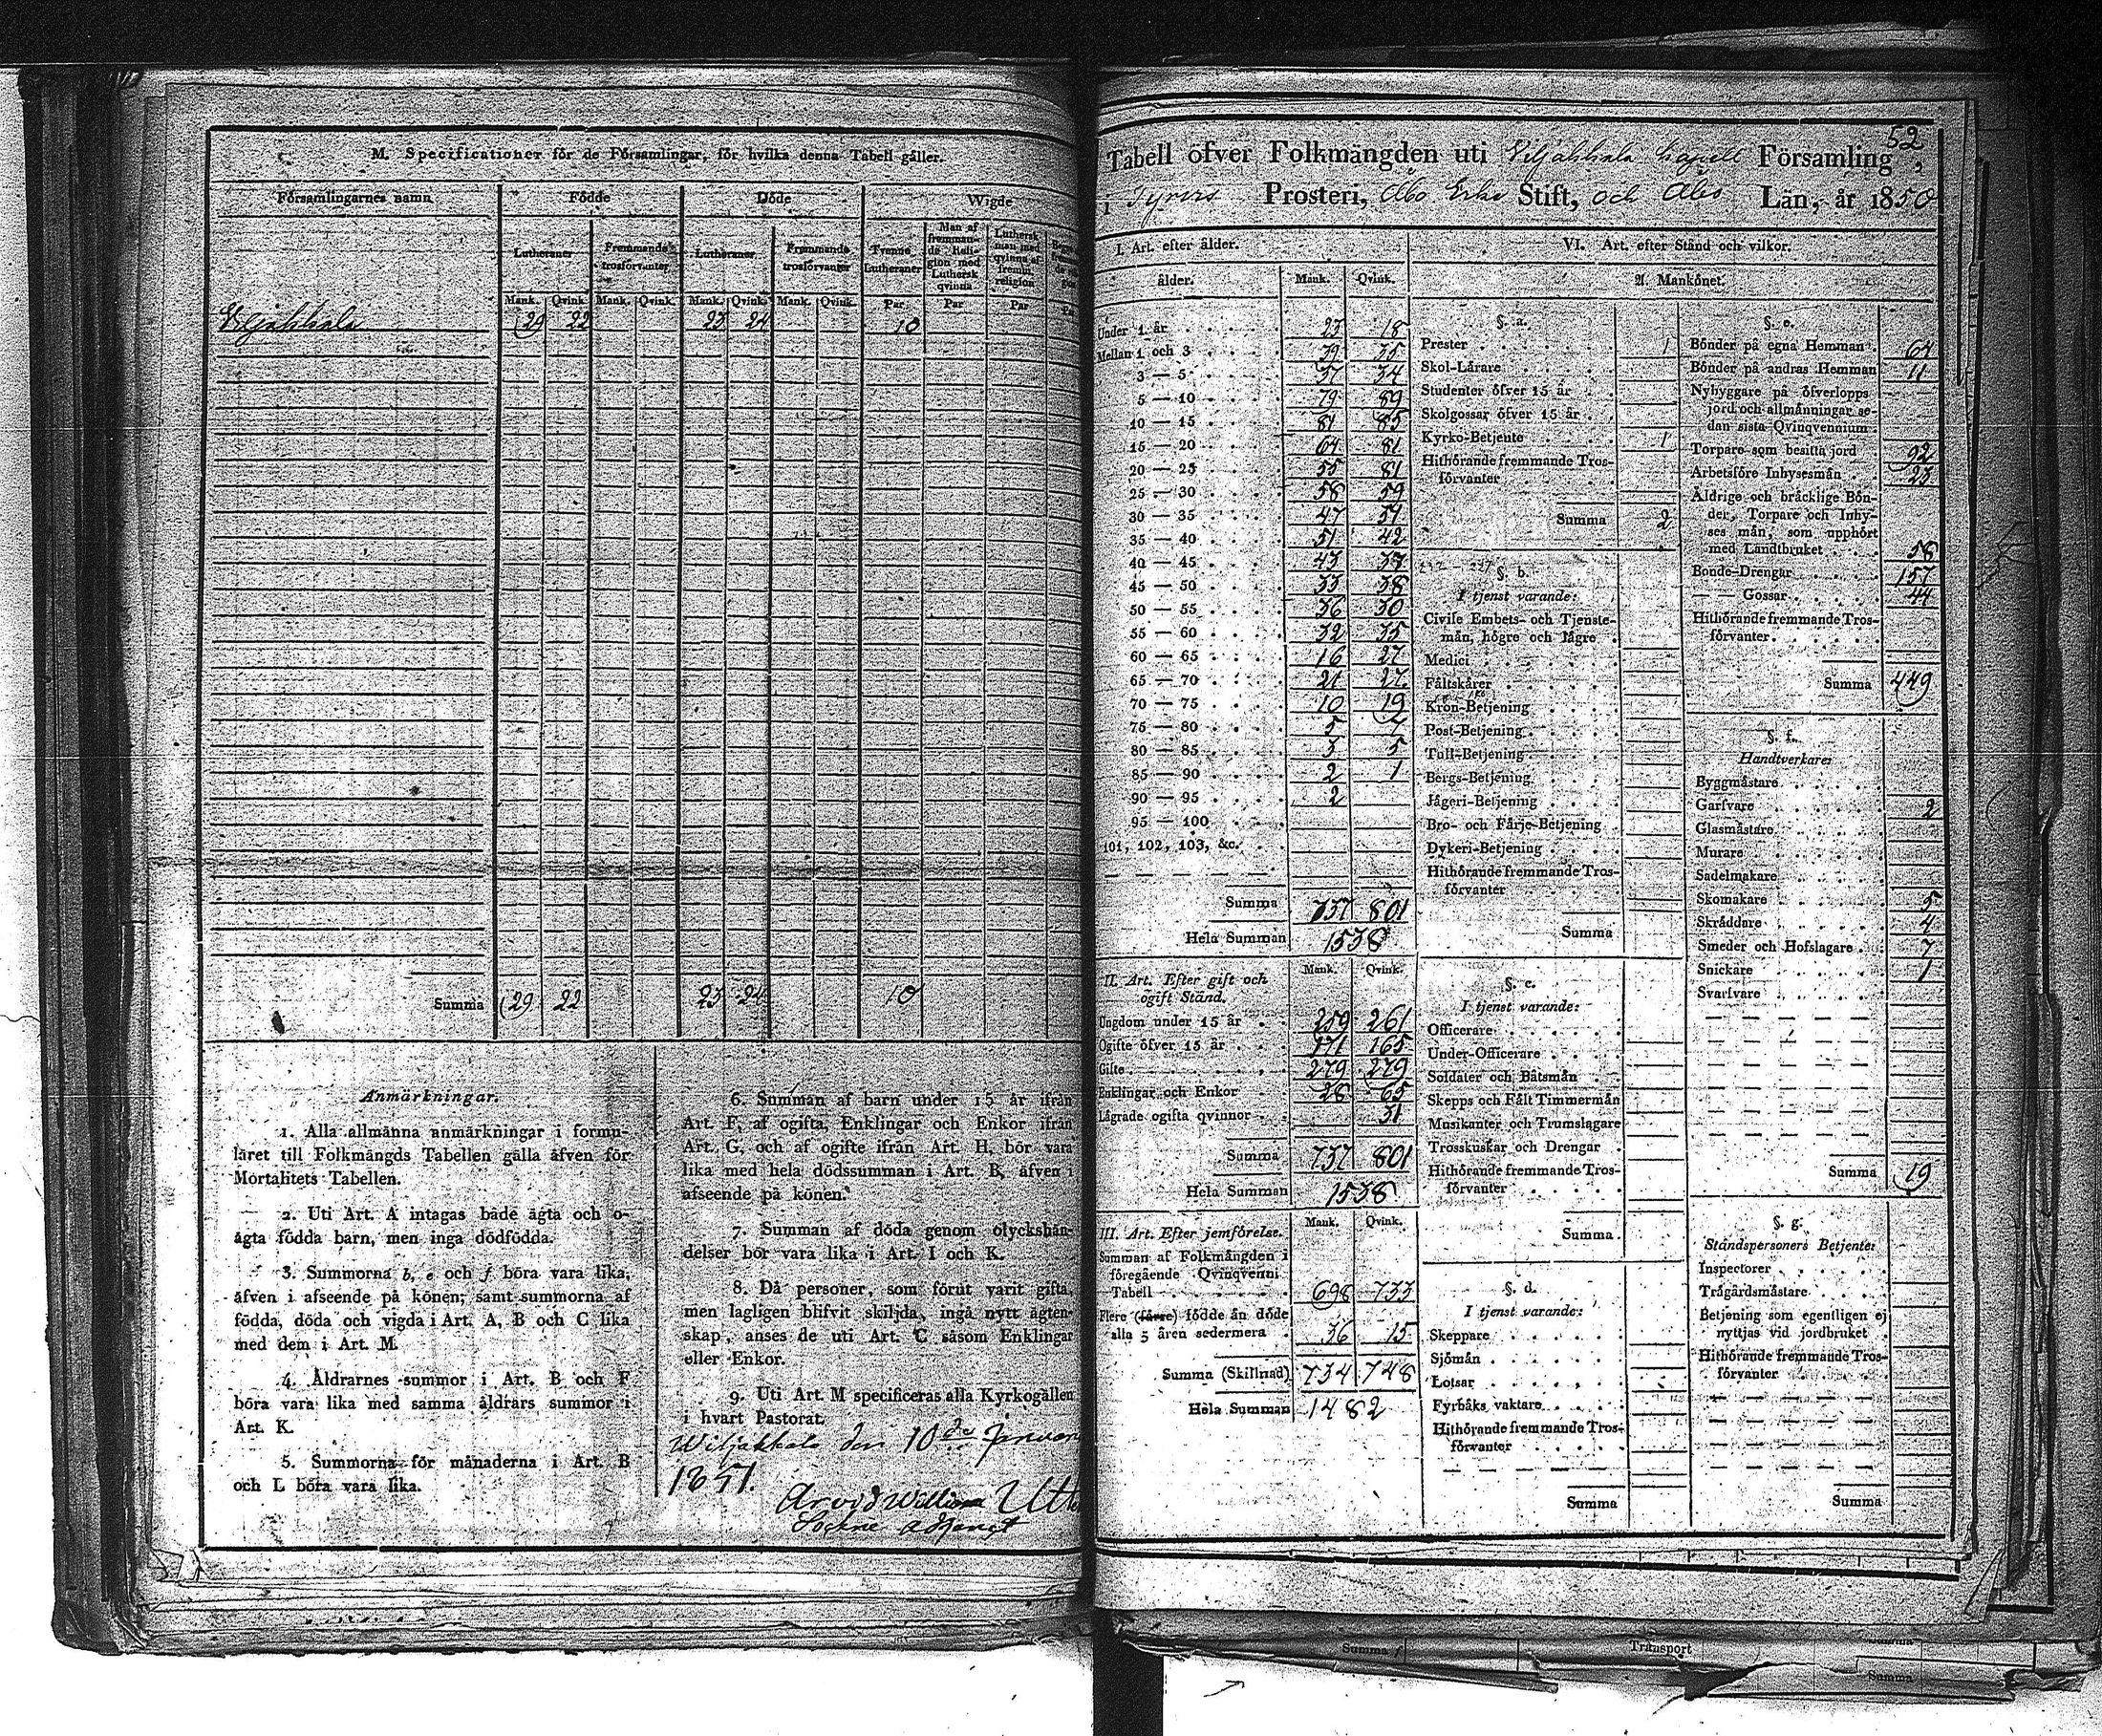 M. Specificationer för de Församlingar, för hvilka denna Tabell gäller.
Församlingarnes namn Födde Döde Wigde
Lutheraner Fremmande trosförvanter Lutheraner Fremmande trosförvanter Tvenne Lutheraner Man af fremmande Religion med Luthersk qvinna Luthersk man med qvinna af fremm. religion
Mank. Qvink. Mank. Qvink. Mank. Qvink. Mank. Qvink. Par Par Par
Wiljakkala 29 22 23 24 10
Summa 29 22 23 24 10
Anmärkningar.
1. Alla allmänna anmärkningar i formu-
läret till Folkmängds Tabellen gälla äfven för
Mortalitets Tabellen.
2. Uti Art. A intagas både ägta och o-
ägta födda barn, men inga dödfödda.
3. Summorna b, e och f böra vara lika,
äfven i afseende på könen; samt summorna af
födda, döda och vigda i Art. A, B och C lika
med dem i Art. M.
4. Åldrarnes summor i Art. B och F
böra vara lika med samma åldrars summor i
Art. K.
5. Summorna för månaderna i Art. B
och L böra vara lika.
6. Summan af barn under 15 år ifrån
Art. F, af ogifta, Enklingar och Enkor ifrån
Art. G, och af ogifte ifrån Art. H, bör vara
lika med hela dödssumman i Art. B, äfven i
afseende på könen.
7. Summan af döda genom olyckshän-
delser bör vara lika i Art. I och K.
8. Då personer, som förut varit gifta,
men lagligen blifvit skiljda, ingå nytt ägten-
skap, anses de uti Art. C såsom Enklingar
eller Enkor.
9. Uti Art. M specificeras alla Kyrkogällen
i hvart Pastorat.
Wiljakkala den 10de Januari
1851.
Arvid William
52
Tabell öfver Folkmängden uti Viljakkala Capell Församling,
i Tyrvis Prosteri, Åbo Erke Stift, och Åbo Län, år 1850
I. Art. efter ålder.
ålder. Mank. Qvink.
Under 1 år 23 18
Mellan 1 och 3 39 35
3 — 5 37 34
5 — 10 79 89
10 — 15 81 85
15 — 20 64 81
20 — 25 55 81
25 — 30 58 59
30 — 35 47 51
35 — 40 51 42
40 — 45 43 37
45 — 50 33 38
50 — 55 36 30
55 — 60 32 35
60 — 65 16 27
65 — 70 21 27
70 — 75 10 19
75 — 80 5 7
80 — 85 3 5
85 — 90 2 1
90 — 95 2
95 — 100
101, 102, 103, &c.
Summa 737 801
Hela Summan 1538
II. Art. Efter gift och ogift Stånd. Mank. Qvink.
Ungdom under 15 år 259 261
Ogifte öfver 15 år 171 165
Gifte 279 279
Enklingar och Enkor 28 65
Lägrade ogifta qvinnor 31
Summa 737 801
Hela Summan 1538
III. Art. Efter jemförelse. Mank. Qvink.
Summan af Folkmängden i
föregående Qvinqvenni
Tabell 698 733
Flere (färre) födde än döde
alla 5 åren sedermera 36 15
Summa (Skillnad) 734 748
Hela Summan 1482
VI. Art. efter Stånd och vilkor.
A. Mankönet.
§. a.
Prester 1
Skol-Lärare
Studenter öfver 15 år
Skolgossar öfver 15 år
Kyrko-Betjente 1
Hithörande fremmande Tros-
förvanter
Summa 2
§. b.
I tjenst varande:
Civile Embets- och Tjenste-
män, högre och lägre
Medici
Fältskärer
Kron-Betjening
Post-Betjening
Tull-Betjening
Bergs-Betjening
Jägeri-Betjening
Bro- och Färje-Betjening
Dykeri-Betjening
Hithörande fremmande Tros-
förvanter
Summa
§. c.
I tjenst varande:
Officerare
Under-Officerare
Soldater och Båtsmän
Skepps och Fält Timmermän
Musikanter och Trumslagare
Trosskuskar och Drengar
Hithörande fremmande Tros-
förvanter
Summa
§. d.
I tjenst varande:
Skeppare
Sjömän
Lotsar
Fyrbåks vaktare
Hithörande fremmande Tros-
förvanter
Summa
§. e.
Bönder på egna Hemman 64
Bönder på andras Hemman 11
Nybyggare på öfverlopps
jord och allmänningar se-
dan sista Qvinqvennium
Torpare som besitta jord 92
Arbetsföre Inhysesmän 23
Åldrige och bräcklige Bön-
der, Torpare och Inhy-
ses män, som upphört
med Landtbruket 58
Bonde-Drengar 157
— — Gossar 44
Hithörande fremmande Tros-
förvanter
Summa 449
§. f.
Handtverkare:
Byggmästare
Garfvare 2
Glasmästare
Murare
Sadelmakare
Skomakare 5
Skräddare 4
Smeder och Hofslagare 7
Snickare 1
Svarfvare
Summa 19
§. g.
Ståndspersoners Betjente:
Inspectorer
Trägårdsmästare
Betjening som egentligen ej
nyttjas vid jordbruket
Hithörande fremmande Tros-
förvanter
Summa
Summa Transport Summa